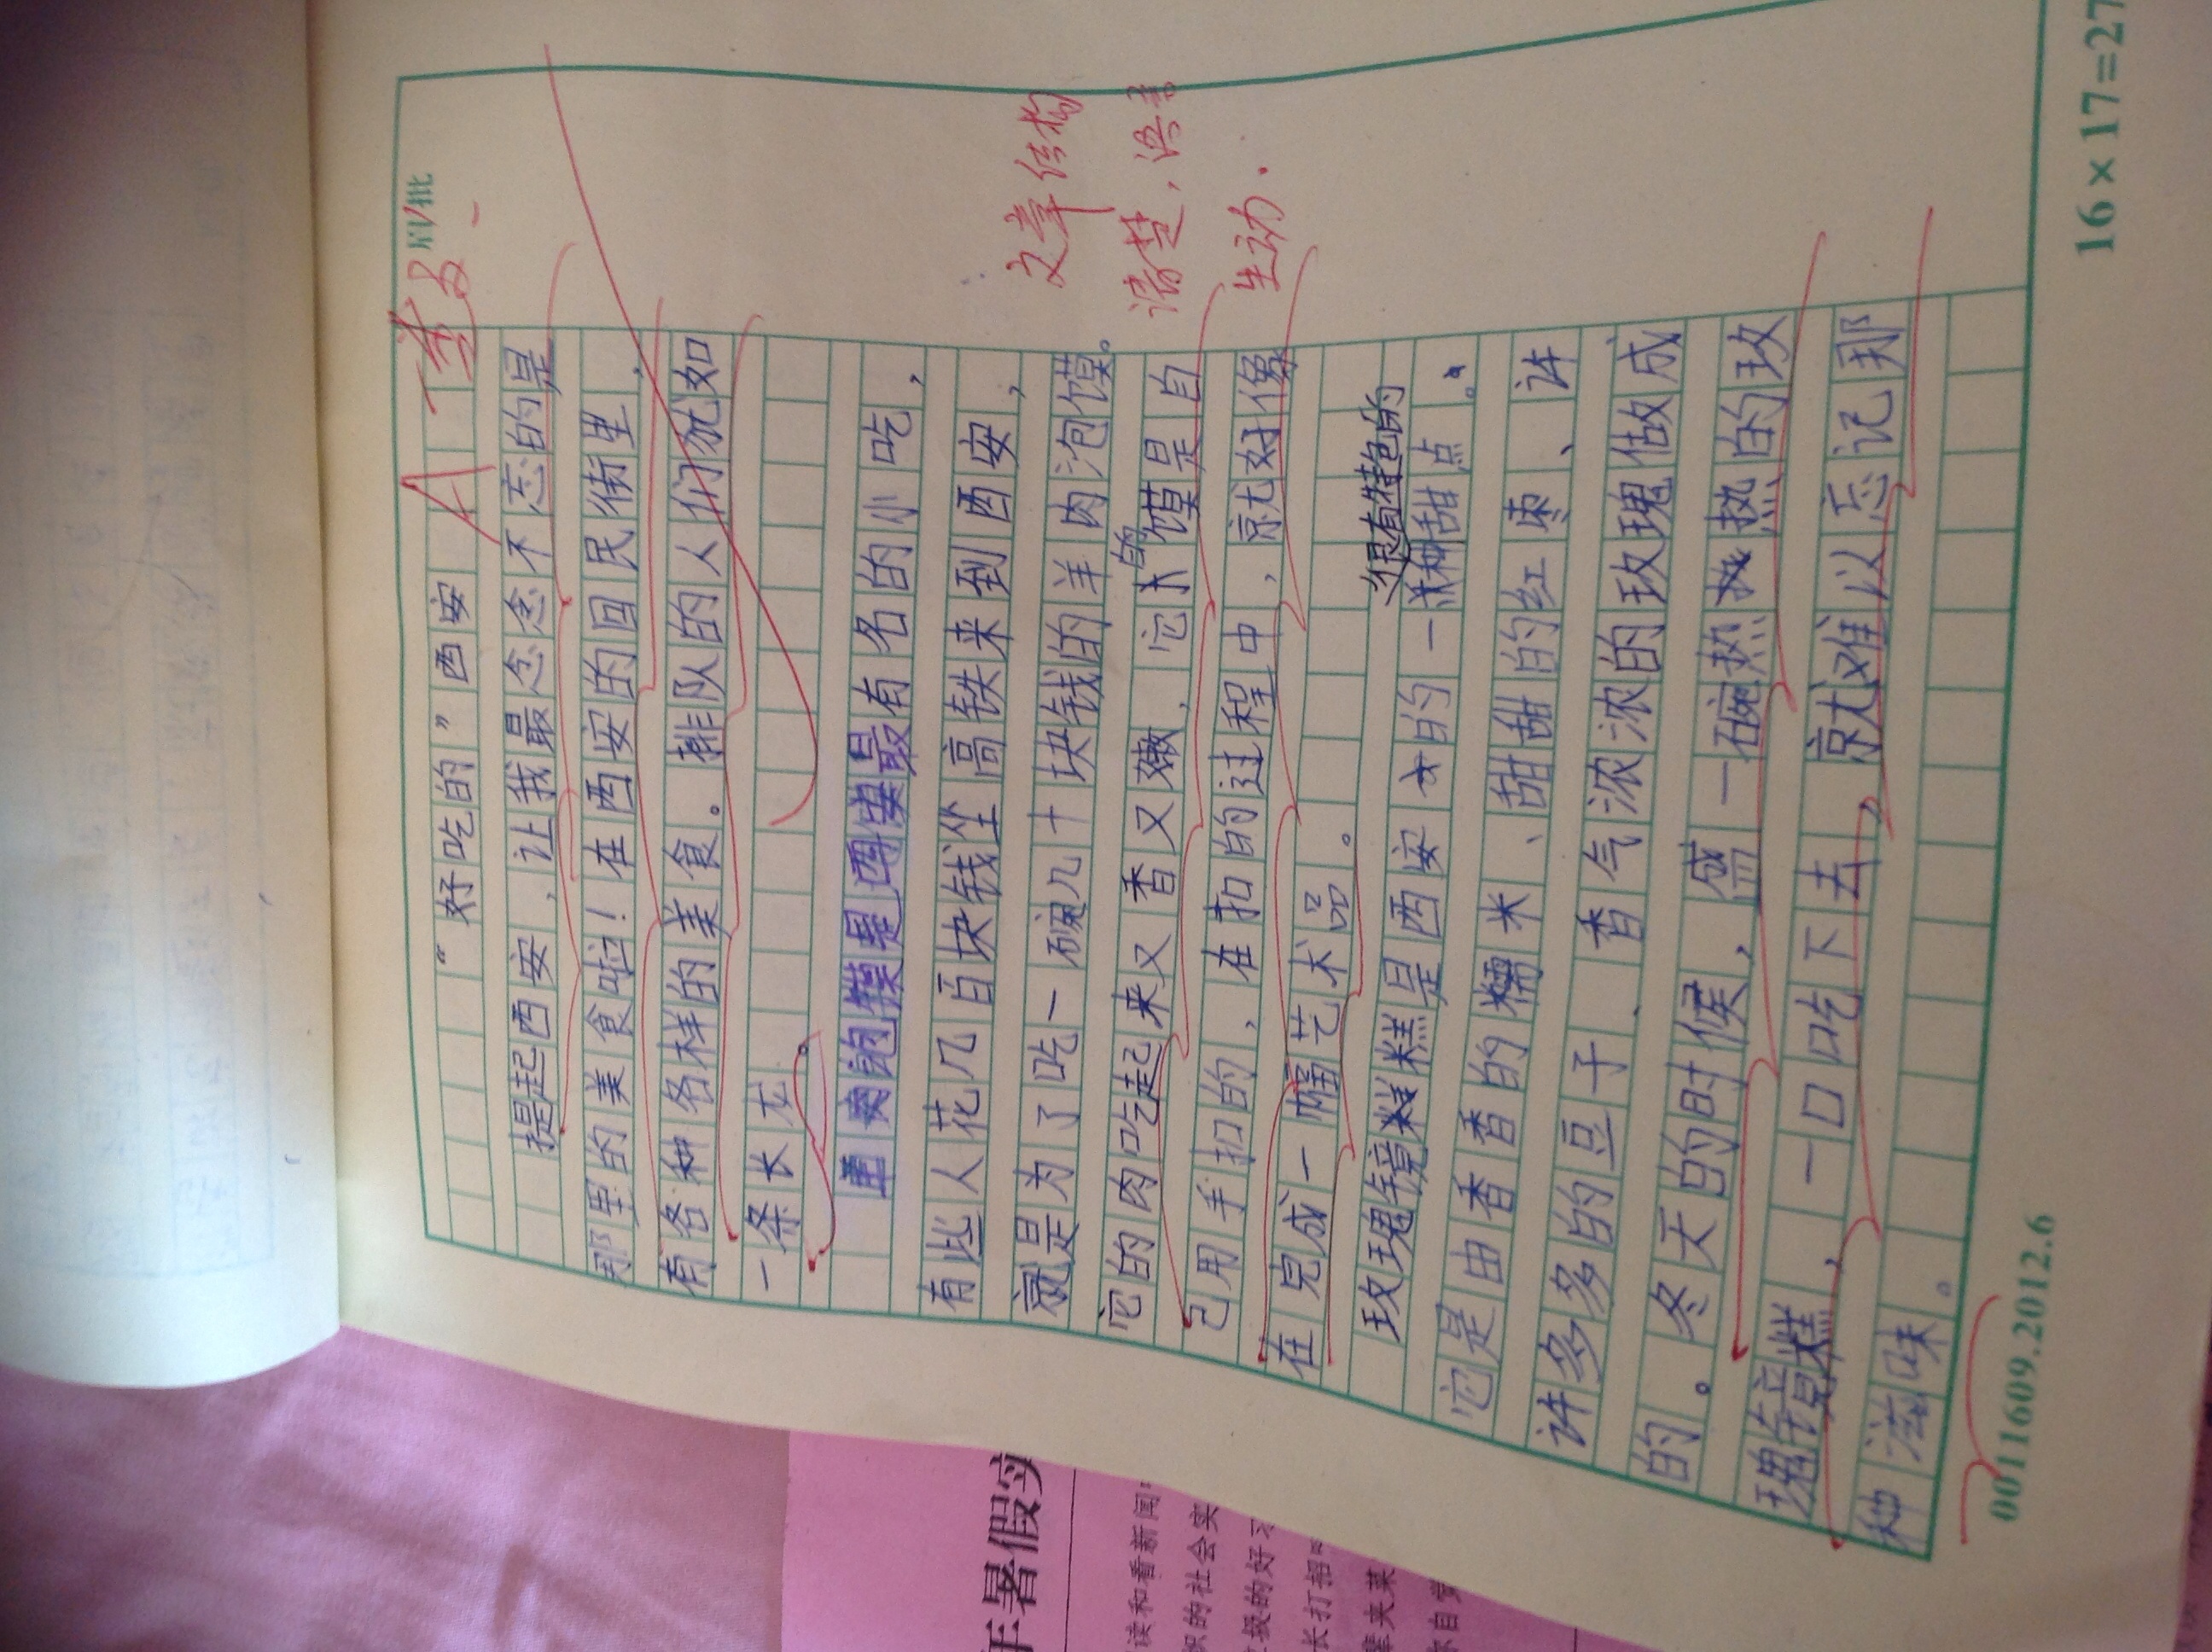 “好吃的”西安
提起西安,让我最念念不忘的是
那里的美食啦!在西安的回民街里,
有各种各样的美食。排队的人们犹如
一条长龙。
羊肉泡馍是西安最有名的小吃,
有些人花几百块钱坐高铁来到西安,
就是为了吃一碗几十块钱的羊肉泡馍。
它的肉吃起来又香又嫩,它的馍是自
己用手扣的,在扣的过程中,就好像
在完成一幅艺术品。
玫瑰镜糕是西安的一种
很有特色的
甜点。
它是由香香的糯米、甜甜的红枣、许
许多多的豆子、香气浓浓的玫瑰做成
的。冬天的时候,盛一碗热热的玫
瑰镜糕,一口吃下去,就难以忘记那
种滋味。
文章结构
清楚,语言
生动.
A
16×17=27
0011609.2012.6
年暑假实
读和看新闻
织的社会实
级的好习
长打招